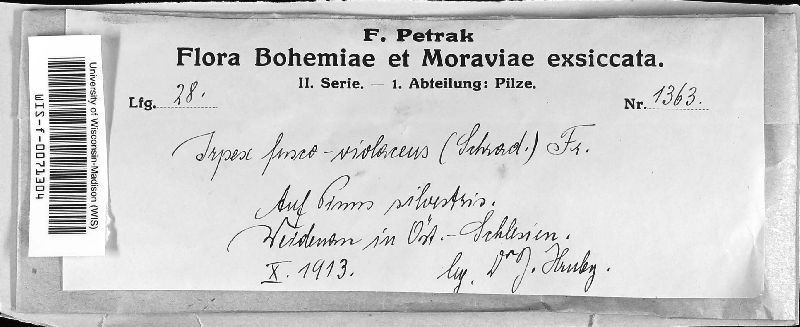 F. Petrak
Flora Bohemiae et Moraviae exsiccata.
II. Serie. — 1. Abteilung: Pilze.
Lfg. 28.
Nr. 1363.
Irpex fusco-violaceus (Schrad.) Fr.
Auf Pinus silvestris.
Weidenau in Öst.-Schlesien.
X. 1913. leg. Dr J. Hruby.
University of Wisconsin-Madison (WIS)
WIS-f-0071304